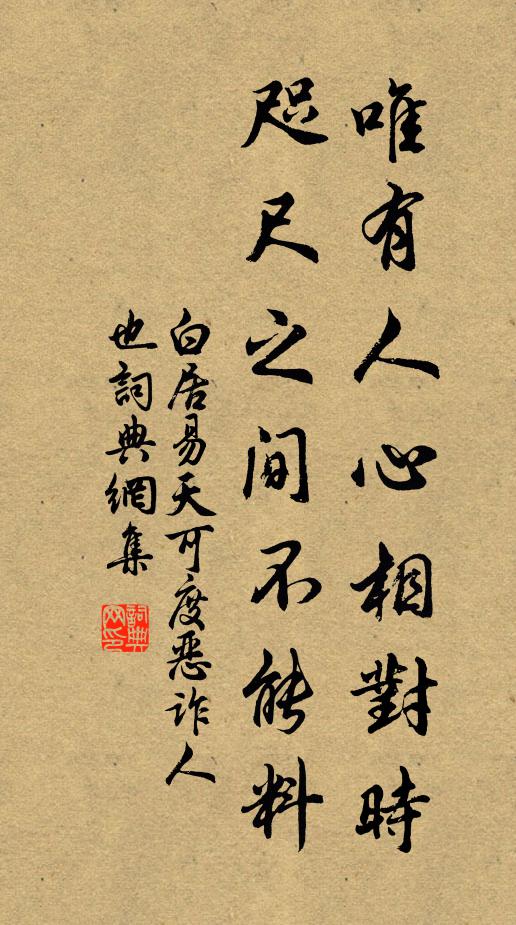 唯有人心相對時
咫尺之間不能料
白居易天可度惡詐人
也詞典網集
詞典
网印